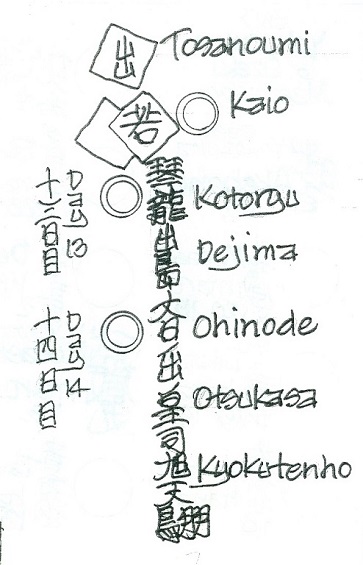 出 Tosanoumi
若 Kaio
琴龍 Kotoryu
Day 13
十三日目
出島 Dejima
大日出 Ohinode
Day 14
十四日目
皇司 Otsukasa
旭天鵬 Kyokutenho